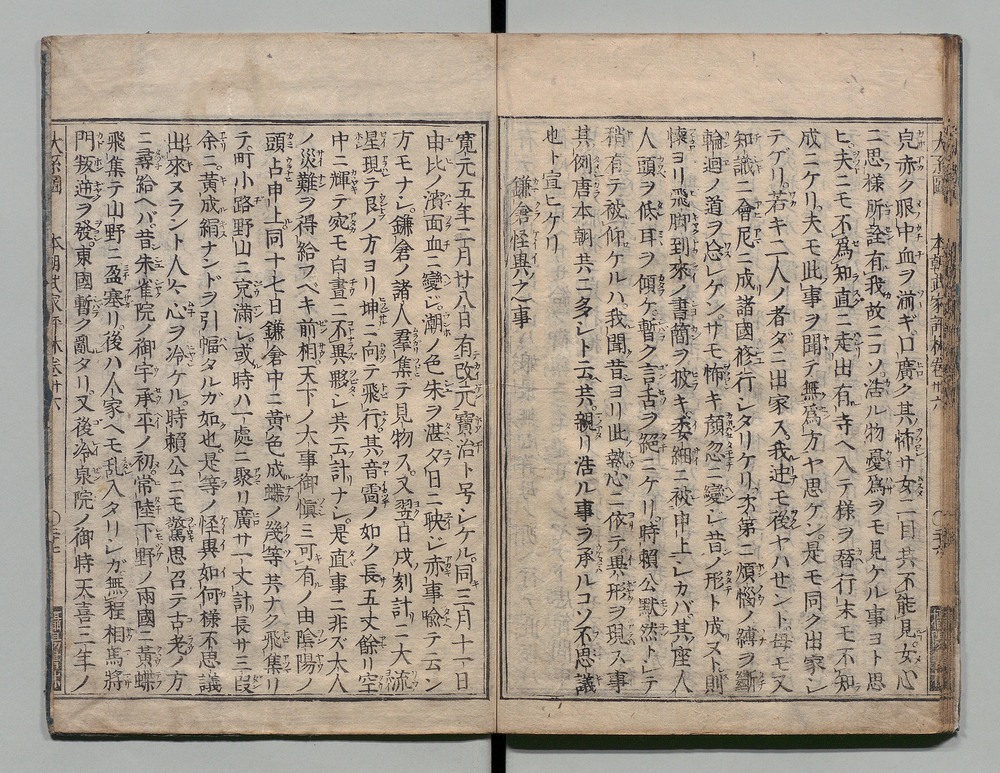 皃赤ク眼中血ヲ淋ギロ廣ク其怖サ女二目共不能見女心
ニ思様所詮有我故ニコソ浩ル物憂爲ヲモ見ケル事ヨト思
ヒ夫ニモ不爲知直ニ走出有寺ヘ入テ様ヲ替行末モ不知
成ニケリ夫モ此事ヲ聞テ無爲方ヤ思ケン是モ同ク出家シ
テゲリ若キ二人ノ者ダニ出家ス我迚モ後ヤハセント母モ又
知識ニ會尼ニ成諸國修行シタリケリ次第ニ煩惱ノ縛ヲ斷
輪廻ノ道ヲ念シケンサモ怖キ顏忽ニ變シ昔ノ形ト成ヌト則
懷ヨリ飛脚到來ノ書簡ヲ披キ委細ニ被申上シカバ其座人
人頭ヲ低耳ヲ傾ケ暫ク言舌ヲ絶ニケリ時賴公默然トシテ
稍有テ被仰ケルハ我聞昔ヨリ此執心ニ依テ異形ヲ現ス事
其例唐本朝共ニ多シト云共親リ浩ル事ヲ承ルコソ不思議
也ト宣ヒケリ
鎌倉怪異之事
寛元五年二月廿八日有改元寶治ト号シケル同三月十一日
由比ノ濱面血ニ變ジ潮ノ色朱ヲ湛タ日ニ映ジ赤事喩テ云ン
方モナシ鎌倉ノ諸人羣集テ見物ス又翌日戌刻計ニ大流
星現テ艮ノ方ヨリ坤ニ向テ飛行其音雷ノ如ク長五丈餘リ空
中ニ輝テ宛モ白晝ニ不異夥シ共云計ナシ是直事ニ非ズ大人
ノ災難ヲ得給フベキ前相天下ノ大事御愼三可有ノ由陰陽ノ
頭占申上同十七日鎌倉中ニ黄色成蝶ノ幾等共ナク飛集リ
テ町小路野山ニ充滿シ或時ハ一處ニ聚リ廣サ一丈計長サ三段
余ニ黄成絹ナンドヲ引幅タルガ如也是等ノ怪異如何樣不思議
出來ヌラント人々心ヲ冷ケル時賴公ニモ驚思召テ古老ノ方
ニ尋給ヘバ昔朱雀院ノ御宇承平ノ初常陸下野ノ兩國ニ黄蝶
飛集テ山野ニ盈塞リ後ハ人家ヘモ乱入タリシガ無程相馬將
門叛逆ヲ發東國暫ク亂タリ又後冷泉院ノ御時天喜二年ノ
本朝武家評林巻廿六